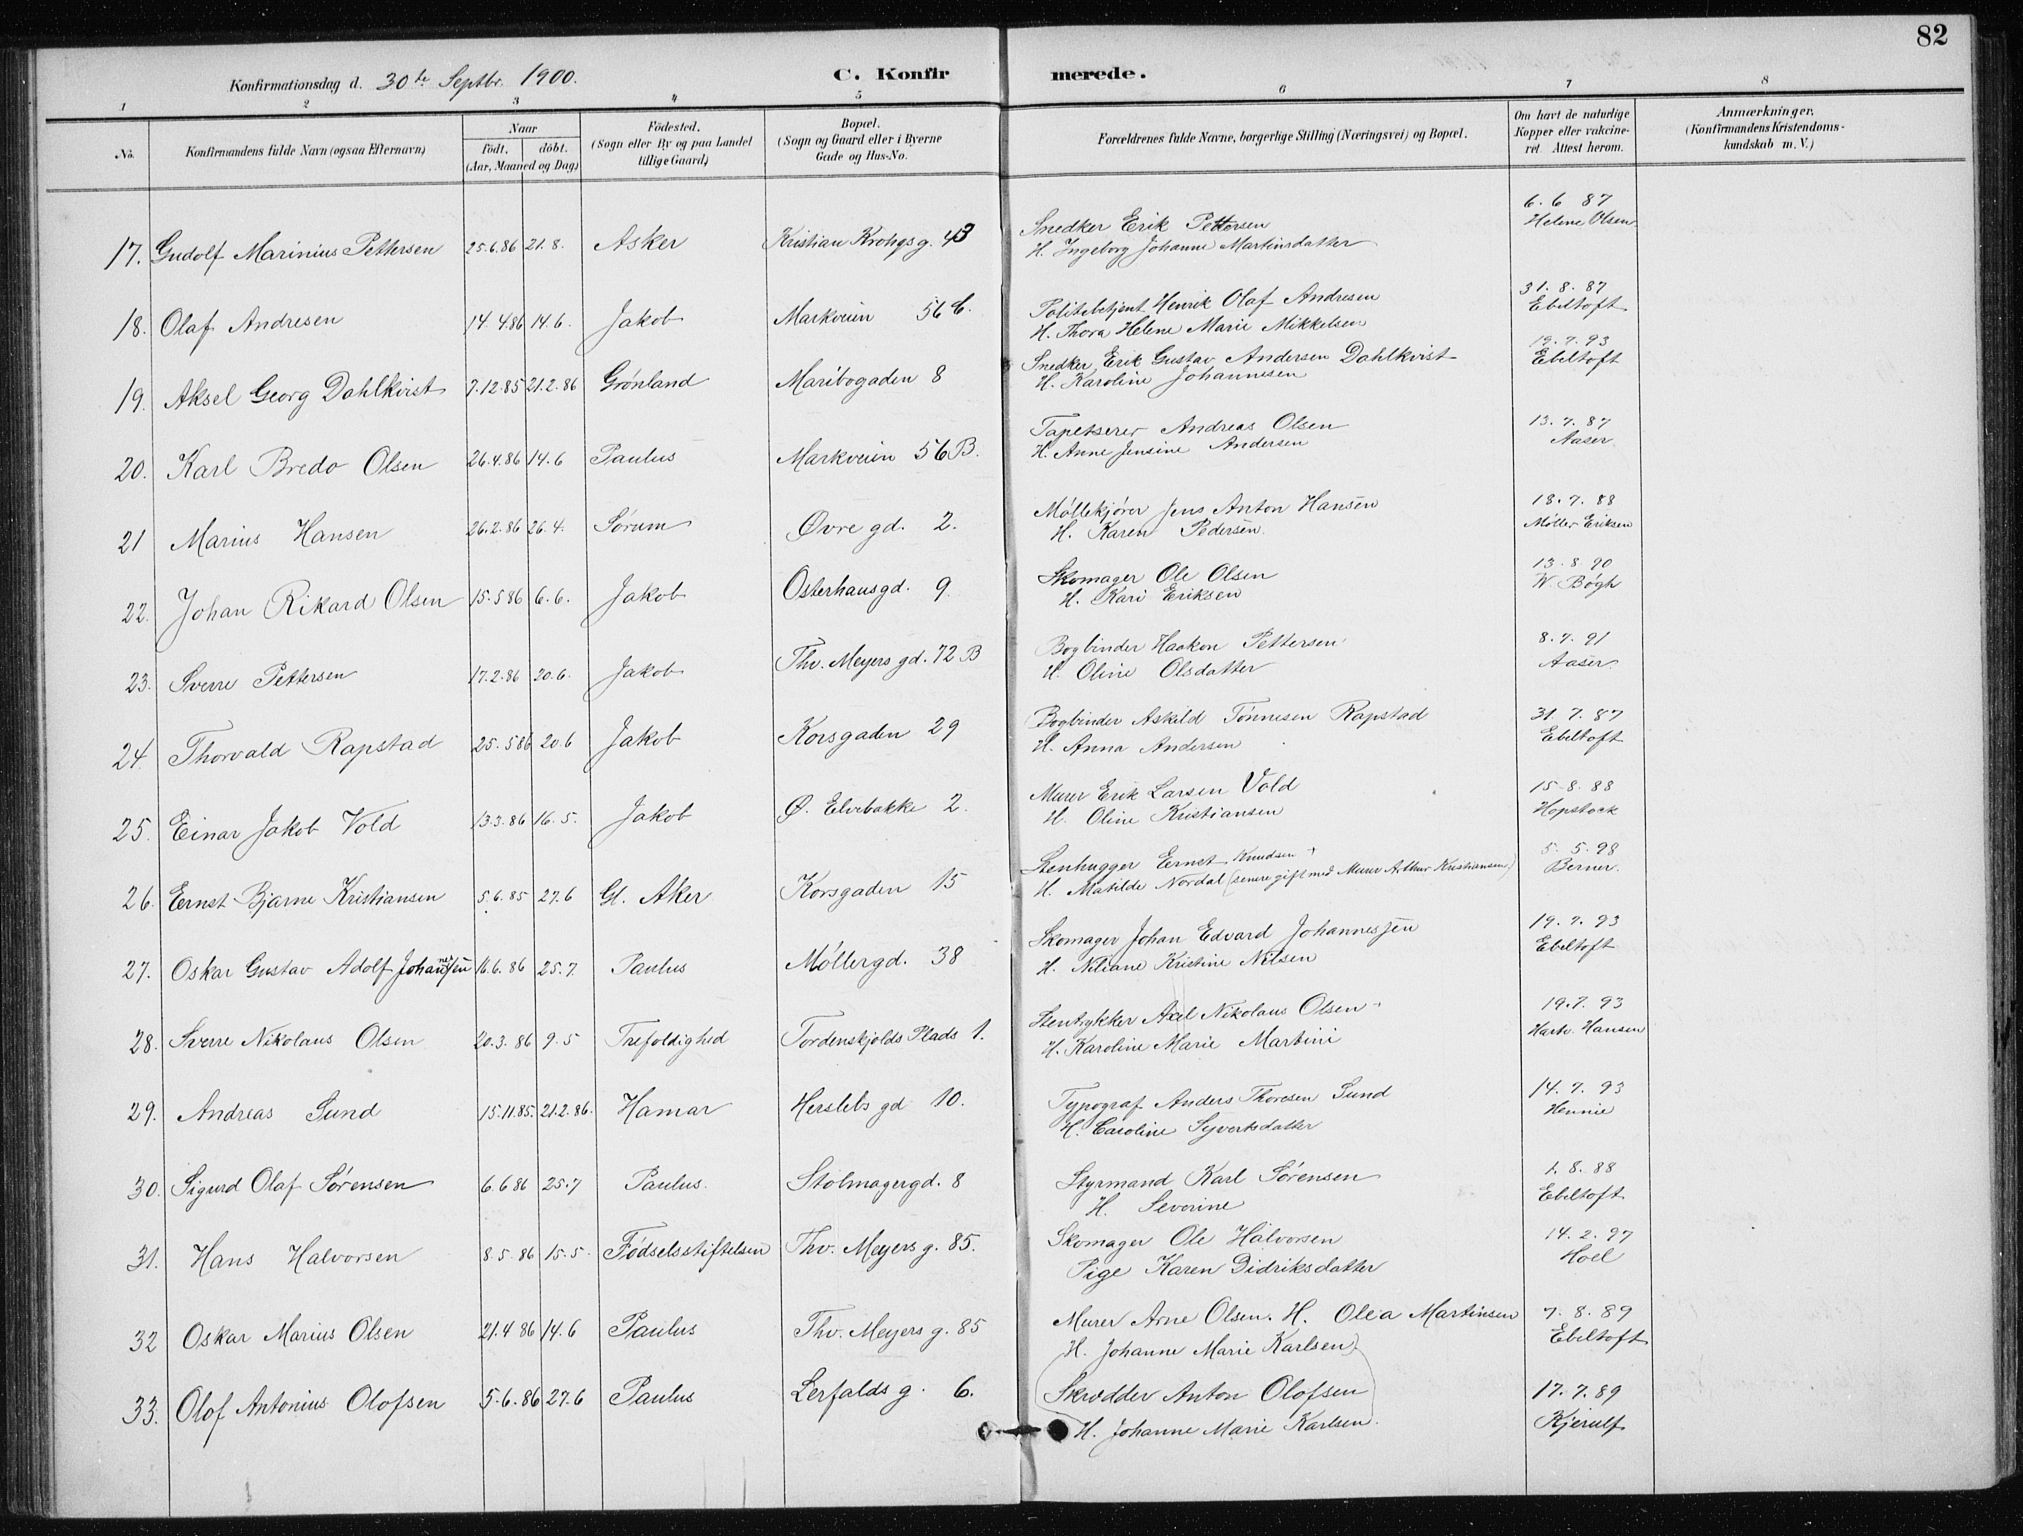 82
Konfirmationsdag d. 30te Septbr. 1900. C. Konfirmerede.
1 2 3 4 5 6 7 8
No. Konfirmandens fulde Navn (ogsaa Efternavn) Naar Födt. döbt. (Aar, Maaned og Dag) Födested. (Sogn eller By og paa Landet tillige Gaard) Bopæl. (Sogn og Gaard eller i Byerne Gade og Hus-No. Forældrenes fulde Navne, borgerlige Stilling (Næringsvei) og Bopæl. Om havt de naturlige Kopper eller vakcineret Attest herom. Anmærkninger. (Konfirmandens Kristendomskundskab m. V.)
17. Gudolf Marinius Pettersen 25.6.86 21.8. Asker Kristian Krohgs g. 43 Snedker Erik Pettersen 6.6 87
H. Ingeborg Johanne Martinsdatter Helene Olsen
18. Olaf Andresen 14.4.86 14.6. Jakob Markveien 56 C. Politibetjent Henrik Olaf Andresen 31.8.87
H. Thora Helene Marie Mikkelsen Ebeltoft
19. Aksel Georg Dahlkvist 7.12.85 21.2.86 Grønland Maribogaden 8 Snedker Erik Gustav Andersen Dahlkvist 19.7.93
H. Karoline Johannesen Ebeltoft
20. Karl Bredo Olsen 26.4.86 14.6 Paulus Markveien 56 B. Tapetserer Andreas Olsen 13.7.87
H. Anne Jensine Andersen Aaser
21 Marius Hansen 26.2.86 26.4. Sørum Øvre gd. 2. Møllekjører Jens Anton Hansen 18.7.88
H. Karen Pedersen. Møller Eriksen
22. Johan Rikard Olsen 15.5 86 6.6. Jakob Osterhausgd. 9. Skomager Ole Olsen 13.8.90
H. Kari Eriksen W. Bøgh
23. Sverre Pettersen 17.2.86 20.6. Jakob Thv. Meyers gd. 72 B Bogbinder Haakon Pettersen 8.7.91
H. Oline Olsdatter Aaser
24. Thorvald Rapstad 25.5 86 20.6 Jakob Korsgaden 29 Bogbinder Askild Tønnesen Rapstad 31.7.87
H. Anna Andersen Ebeltoft
25. Einar Jakob Vold 13.3.86 16.5. Jakob Ø. Elvebakke 2. Murer Erik Larsen Vold 15.8.88
H. Oline Kristiansen Hopstock
26. Ernst Bjarne Kristiansen 5.6.85 27.6 Gl. Aker Korsgaden 15 Stenhugger Ernst Knudsen 5.5.98
H. Matilde Nordal (senere gift med Murer Arthur Kristiansen) Berner.
27. Oskar Gustav Adolf Johannesjen 16.6.86 25.7. Paulus Møllergd. 38 Skomager Johan Edvard Johannesjen 19.7.93
H. Niliane Kristine Nilsen Ebeltoft
28. Sverre Nikolaus Olsen 20.3.86 9.5 Trefoldighed Tordenskjolds Plads 1. Stentrykker Axel Nikolaus Olsen 19.7.93
H. Karoline Marie Martini Hartv. Hansen
29. Andreas Sund 15.11.85 21.2.86. Hamar Herslebs gd 10. Typograf Anders Thoresen Sund 14.7.93
H. Caroline Syvertsdatter Hennie
30. Sigurd Olaf Sørensen 6.6 86 25.7 Paulus. Stolmagergd. 8 Styrmand Karl Sørensen 1.8.88
H. Severine Ebeltoft
31. Hans Halvorsen 8.5.86 15.5. Fødselsstiftelsen Thv. Meyers g. 85. Skomager Ole Halvorsen 14.2.97
Pige Karen Didriksdatter Hoel
32 Oskar Marius Olsen 21.4 86 14.6 Paulus Thv. Meyers g. 85 Murer Arne Olsen. H. Olea Martinsen 7.8.89
H. Johanne Marie Karlsen Ebeltoft
33. Olof Antonius Olofsen 5.6.86 27.6 Paulus Lerfalds g. 6. Skrædder Anton Olofsen 17.7.89
H. Johanne Marie Karlsen. Kjerulf